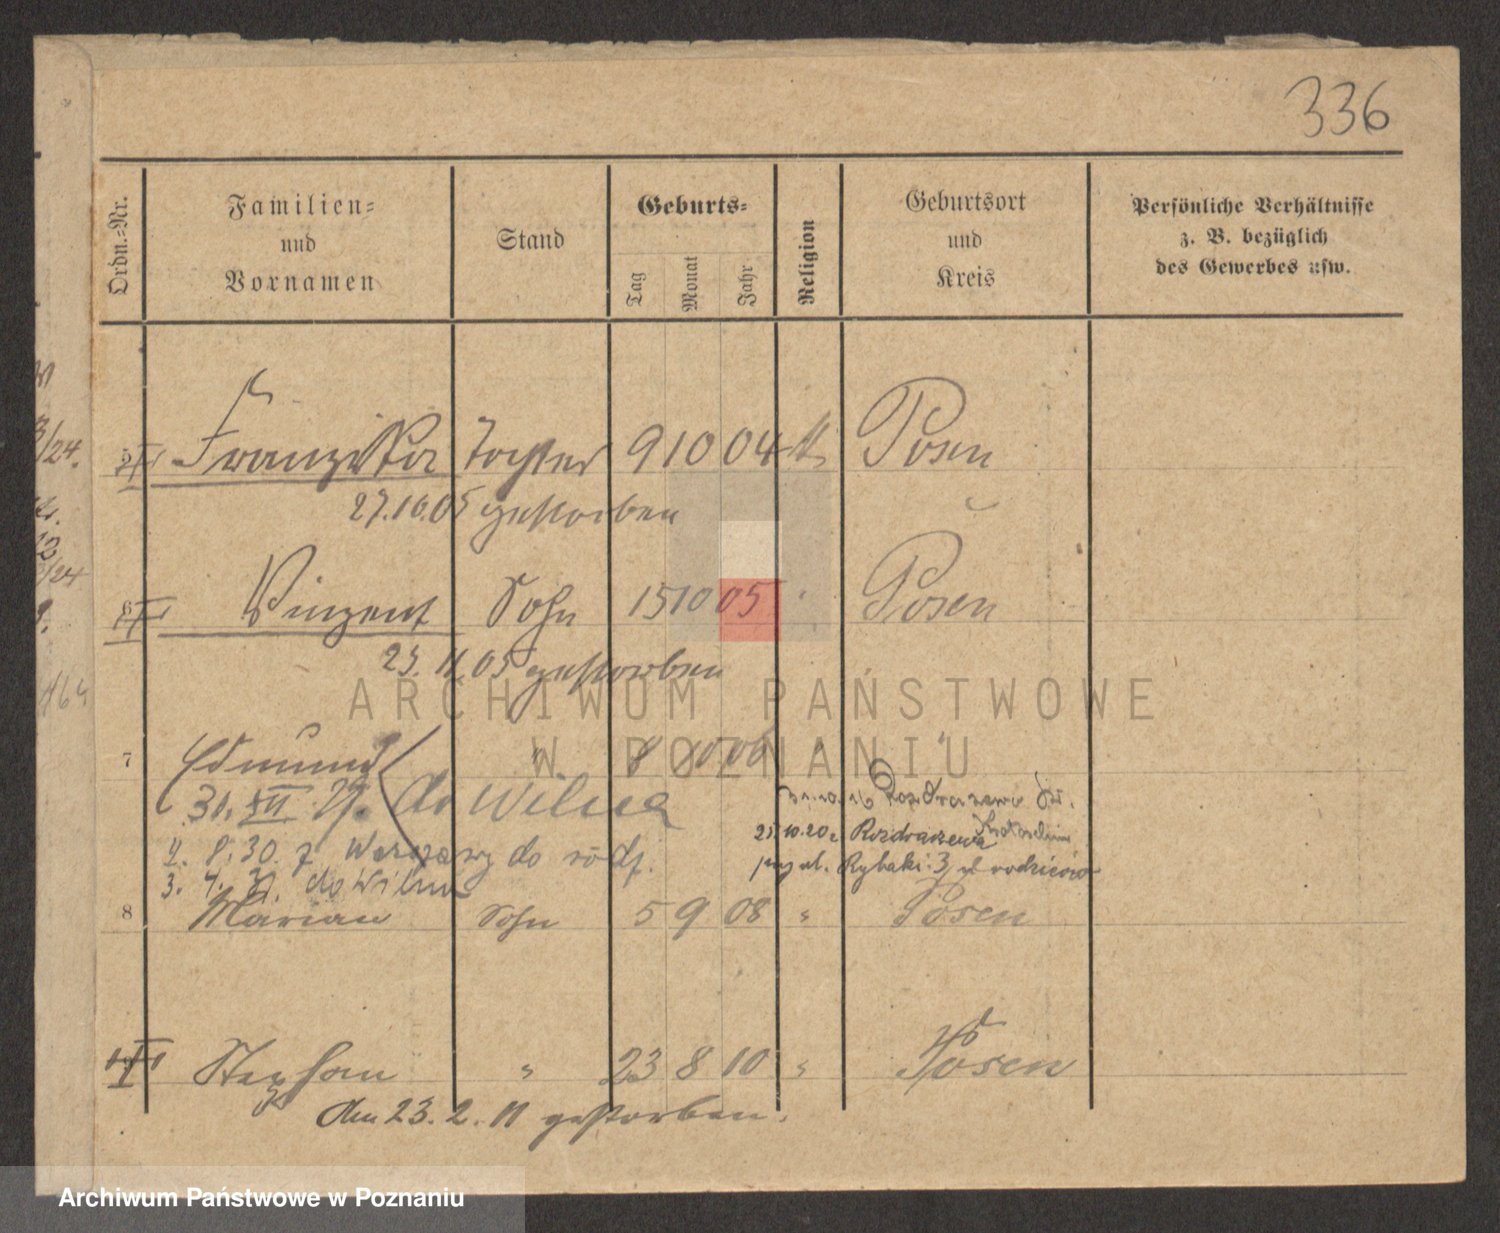 336
Ordn.=Nr.
Familien=
und
Vornamen
Stand
Geburts=
Tag
Monat
Jahr
Religion
Geburtsort
und
Kreis
Persönliche Verhältnisse
z. B. bezüglich
des Gewerbes usw.
/24.
5 Franziska Tochter 9 10 04 Posen
27.10.05 gestorben
/24
6 Vinzent Sohn 15 10 05 Posen
23. 11. 05 gestorben
ARCHIWUM PAŃSTWOWE
W POZNANIU
7 Edmund " 8 10 06 "
31. XII 29. do Wilna
31.10.16 Rozdrazewo
4. 8. 30. z Warszawy do rodz.
25.10.20 z Rozdrazewa Krotoschin
3. 4. 31. do Wilna
przy ul. Rybaki 3, u rodziców
8 Marian Sohn 5 9 08 " Posen
Stephan " 23 8 10 " Posen
den 23. 2. 11 gestorben.
Archiwum Państwowe w Poznaniu